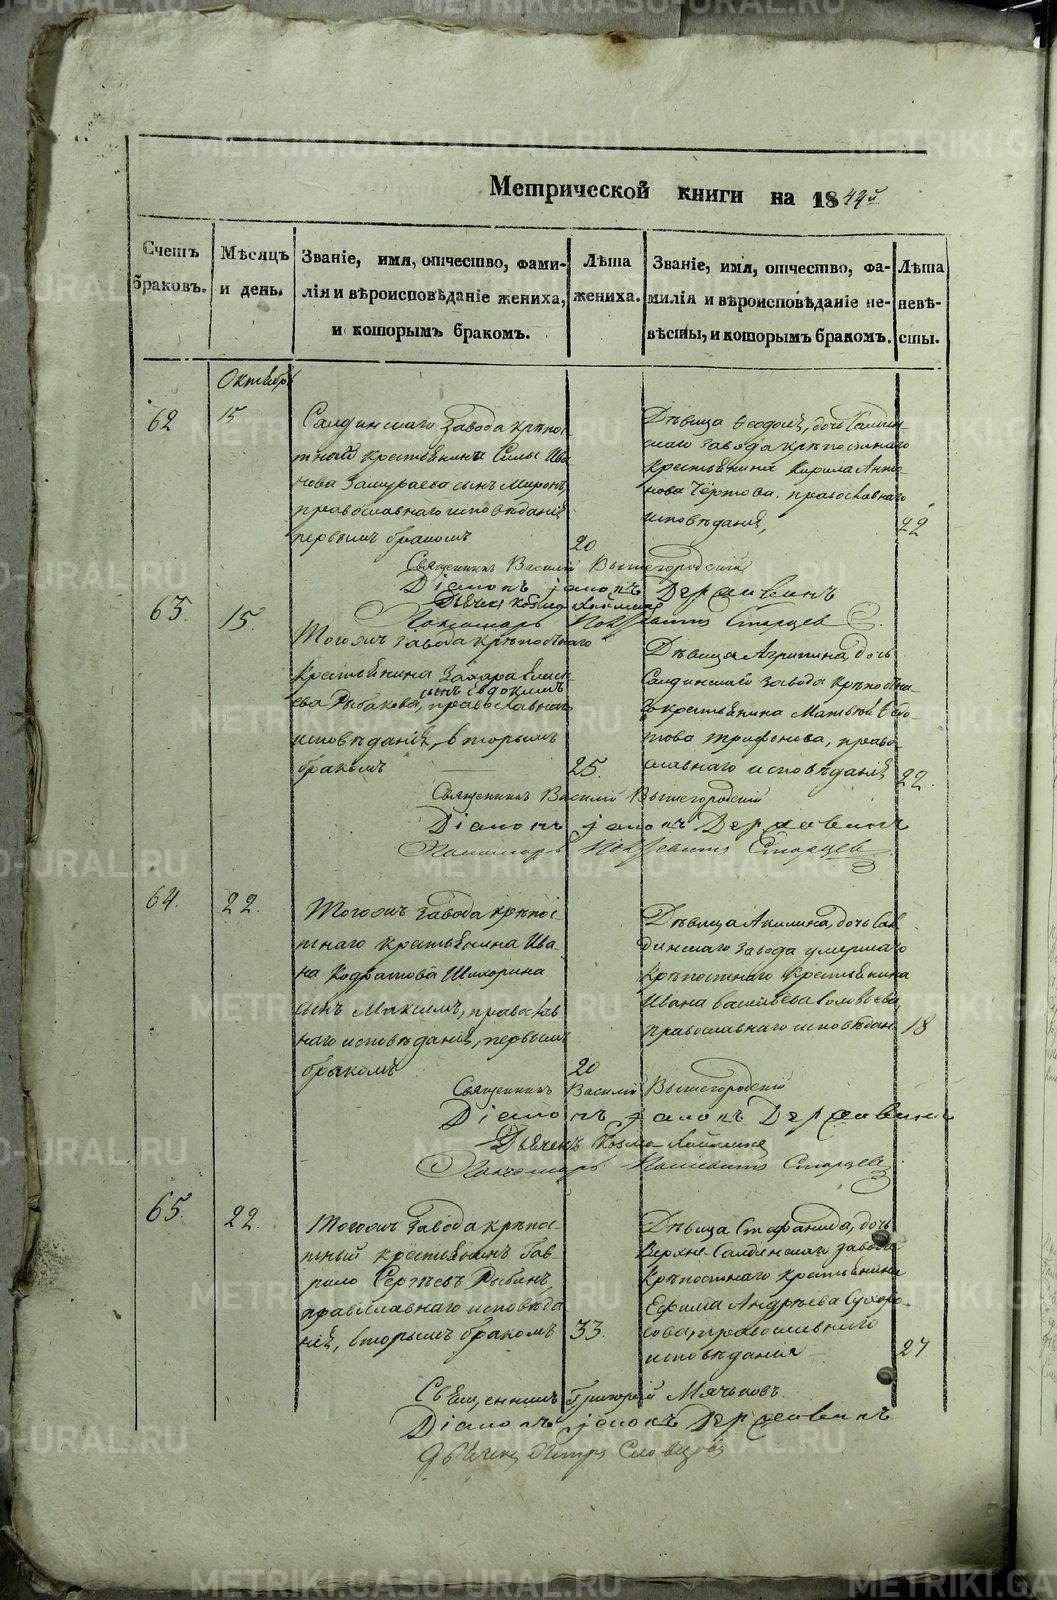 Метрической книги на 1842й
Счетъ браковъ.
Мѣсяцъ и день.
Званіе, имя, отчество, фами-
лія и вѣроисповѣданіе жениха,
и которымъ бракомъ.
Лѣта
жениха.
Званіе, имя, отчество, фа-
милія и вѣроисповѣданіе не-
вѣсты, и которымъ бракомъ.
Лѣта
невѣ-
сты.
Октябрь
62
15
Салдинскаго завода крѣпос-
тнаго крестьянина Силы Ива
нова Замураева сынъ Миронъ,
православнаго исповѣданія,
первымъ бракомъ
20
Дѣвица Ѳеодосія, дочь Салдин-
скаго завода крѣпостнаго
крестьянина Кирила Анти
пова Чёртова, православнаго
исповѣданія,
22
Священникъ Василій Вышегородскій
Діаконъ Іаковъ Державинъ
Дьячекъ Козма
Пономарь Старцев
63.
15
Тогожъ завода крѣпостнаго
крестьянина Захара Елисе-
ева Рыбакова, сынъ Евдокимъ
православнаго
исповѣданія, вторымъ
бракомъ
25.
Дѣвица Агрипина, дочь
Салдинскаго завода крѣпостна-
го крестьянина Матвѣя Ѳедо-
това Трифонова, право-
славнаго исповѣданія
22.
Священникъ Василій Вышегородскій
Діаконъ Іаковъ Державинъ
Пономарь Старцев
64.
22.
Тогожъ завода крѣпос
тнаго крестьянина Ива
на Кодратова Шихорина
сынъ Максимъ, православ
наго исповѣданія, первымъ
бракомъ
20
Дѣвица Акилина, дочь Сал
динскаго завода умершаго
крѣпостнаго крестьянина
Ивана Васильева Соловьева,
православнаго исповѣдан
18
Священникъ Василій Вышегородскій
Діаконъ Іаковъ Державинъ
Дьячекъ Козма
Пономарь Старцев
65.
22.
Тогожъ завода крѣпос-
тный крестьянинъ Гав-
рило Сергѣевъ Рыбинъ,
православнаго исповѣда
нія, вторымъ бракомъ
33.
Дѣвица Стефанида, дочь
Верхне-Салдинскаго завода
крѣпостнаго крестьянина
Ефима Андрѣева Сухоро-
сова, православнаго
исповѣданія
27
Священникъ Григорій Мячьковъ.
Діаконъ Іаковъ Державинъ
Дьячекъ Петръ Словцовъ
METRIKI.GASO-URAL.RU